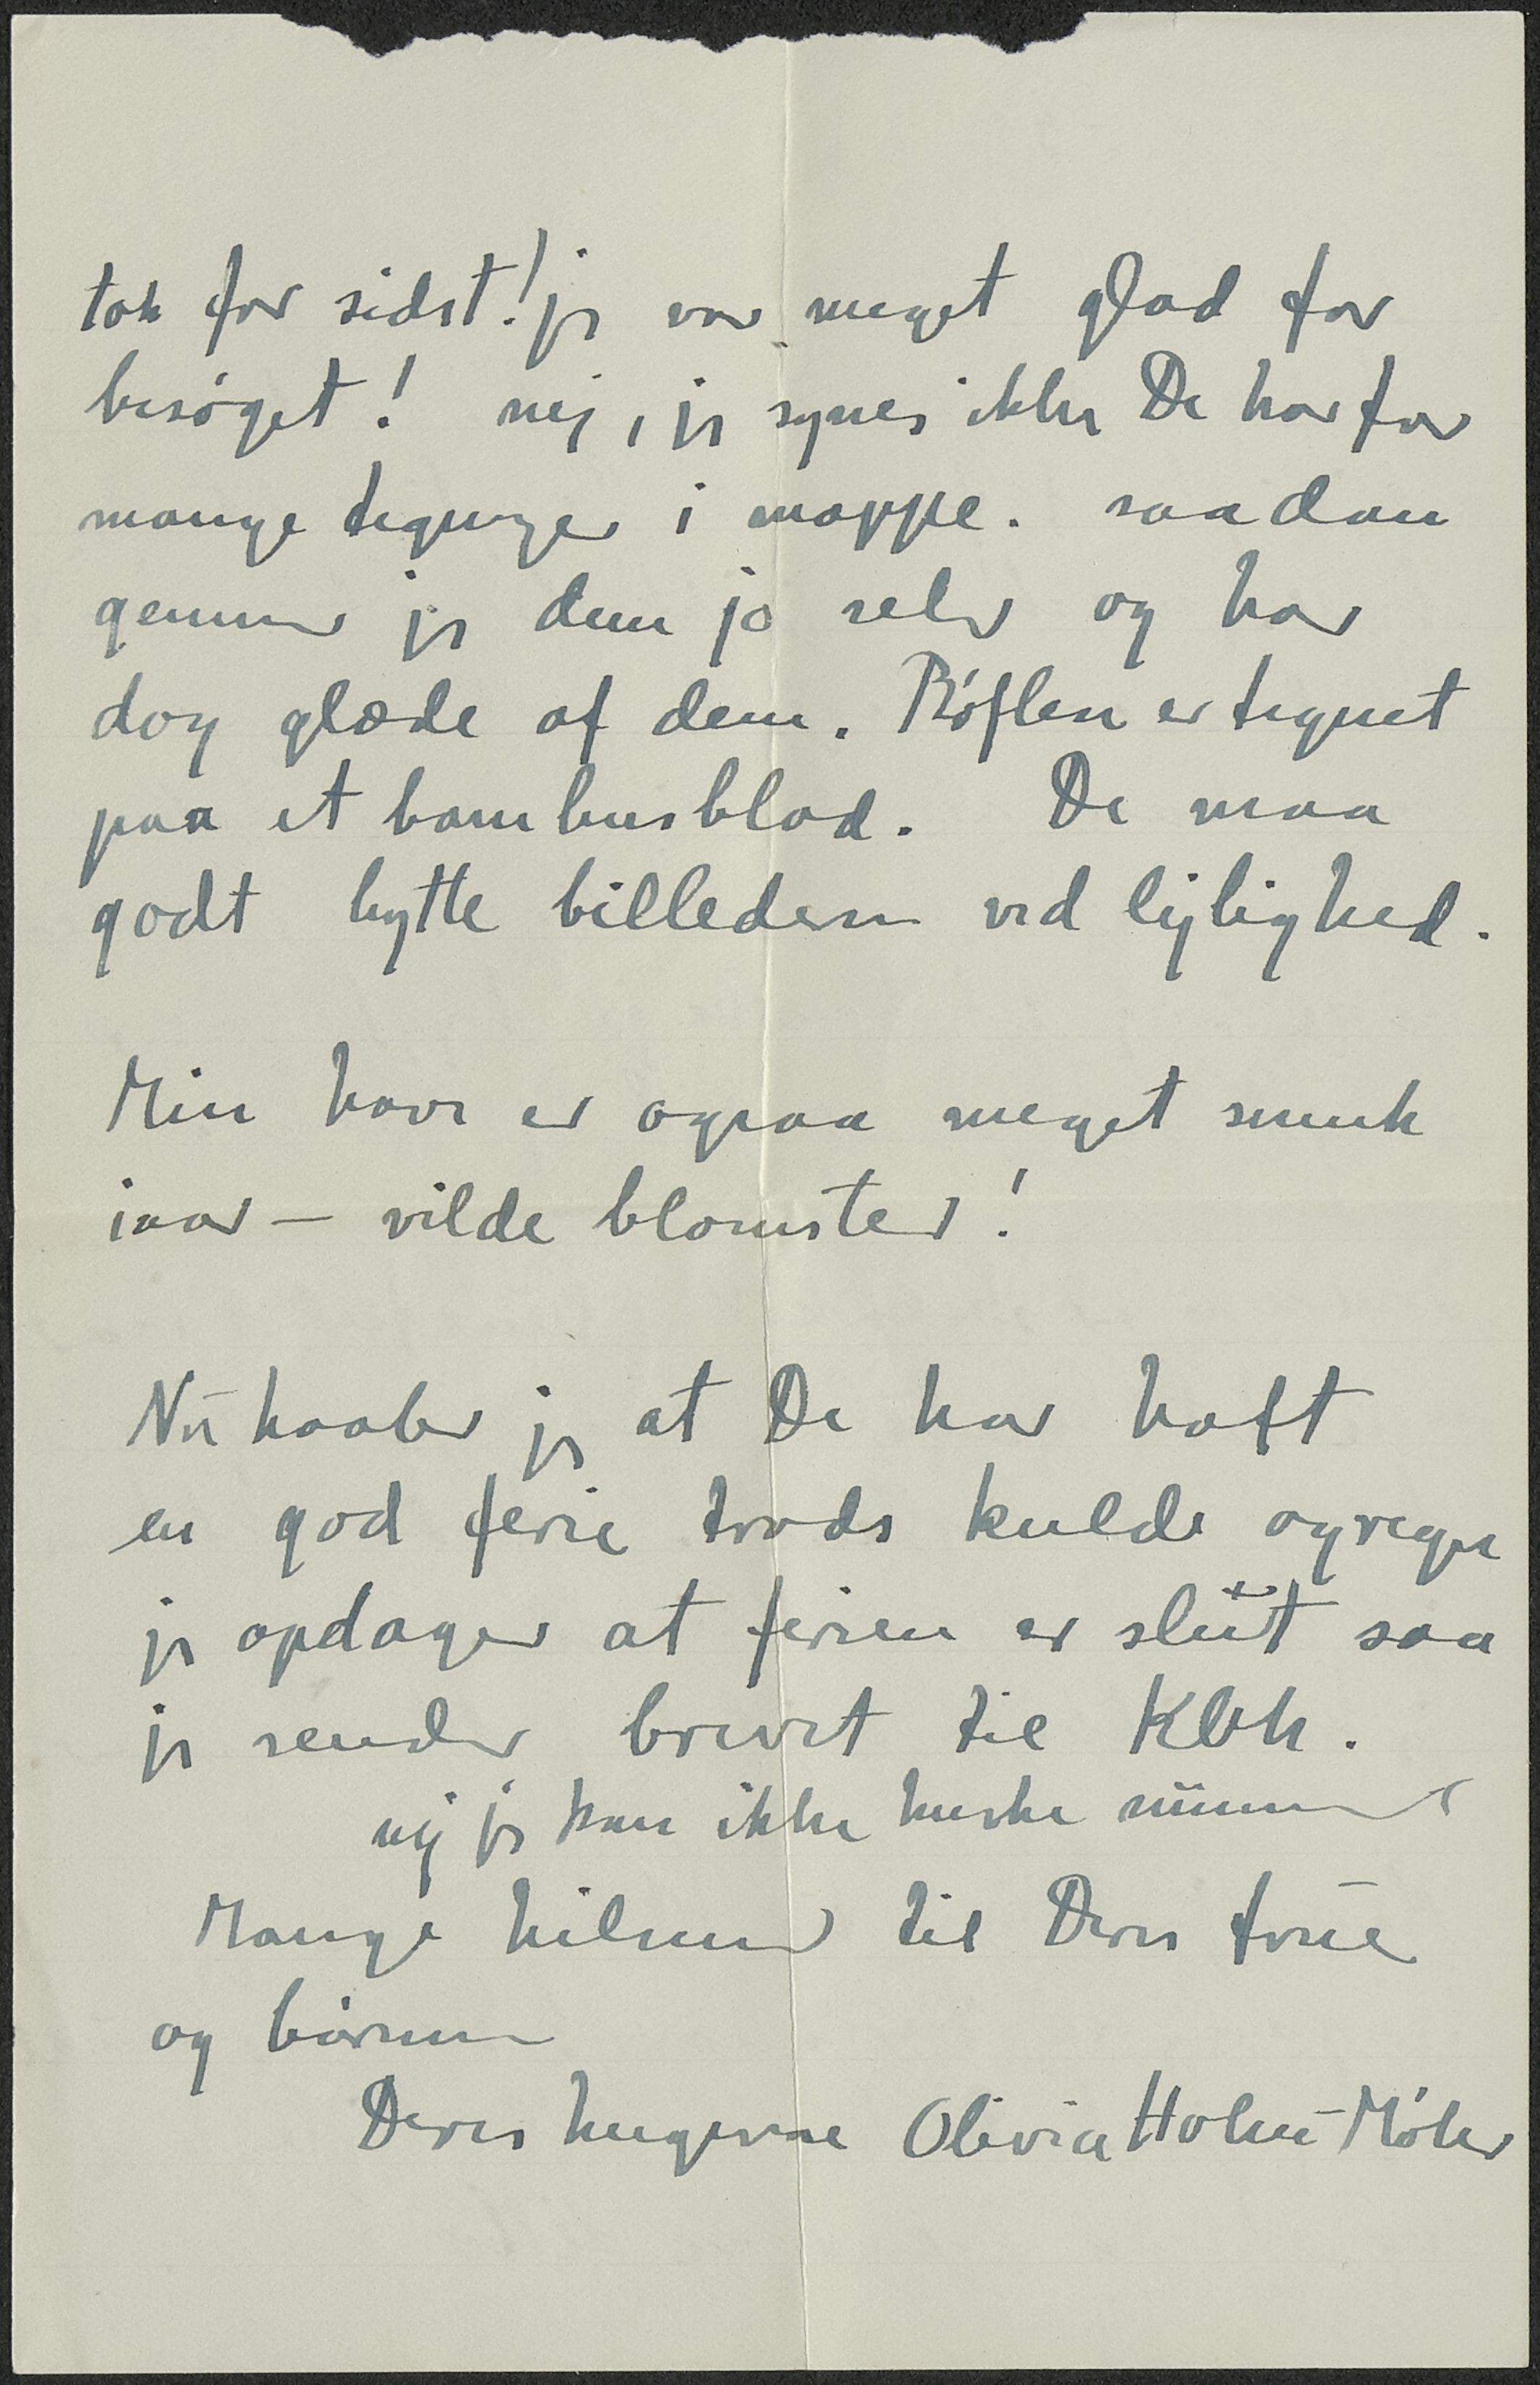 tak for sidst! jeg var meget glad for
besøget! nej, jeg synes ikke De har for
mange tegninger i mappe. saadan
gemmer jeg dem jo selv og har
dog glæde af dem. Bøflen er tegnet
paa et bambusblad. De maa
godt bytte billederne ved lejlighed.
Min have er ogsaa meget smuk
iaar – vilde blomster!
Nu haaber jeg at De har haft
en god ferie trods kulde og regn
jeg opdager at ferien er slut saa
jeg sender brevet til Kbh.
nej jeg kan ikke huske nummer
Mange hilsener til Deres frue
og børnene
Deres hengivne Olivia Holm-Møller